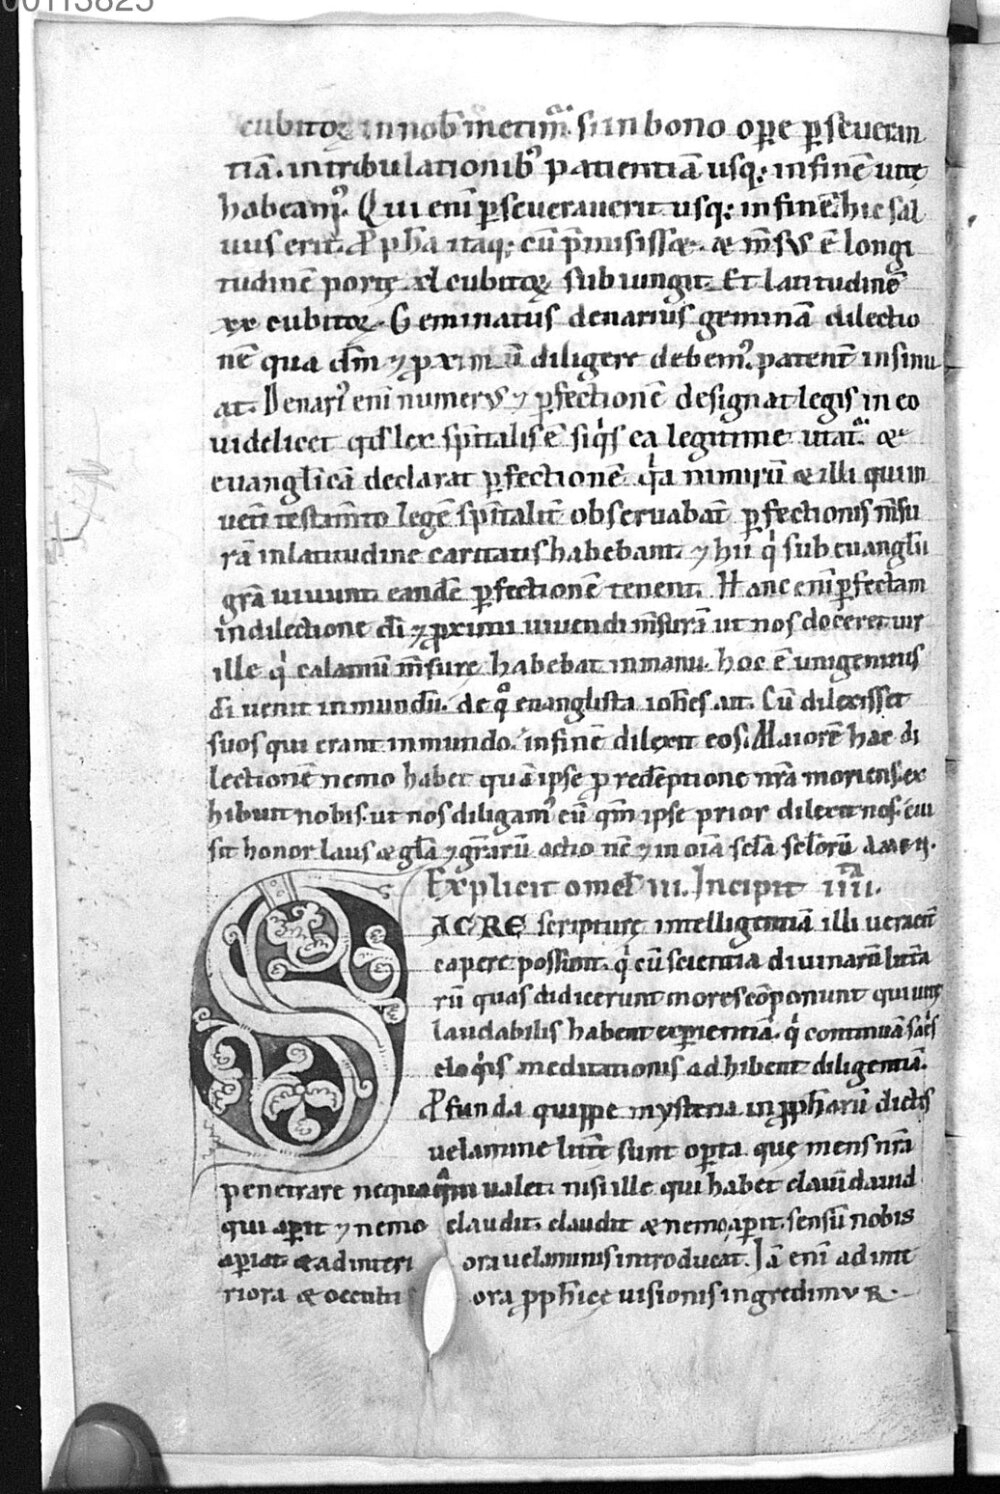 00113825
cubitoꝝ in nob̅ metimᷓ. si in bono oꝑe ꝑseueran
tiā. in tribulationibꝰ patientiā usq; in finē uitę
habeamꝰ. Qui eni̅ ꝑseuerauerit usq; in finē. hic sal
uus erit. Ꝓpħa itaq; cū p̄misisset. & m̄sus ē longi
tudinē portę .xl. cubitoꝝ subiungit. Et latitudinē
xx cubitoꝝ. Geminatus denarius geminā dilectio
nē qua dm̄ ⁊ ꝓximū diligere debemꝰ patent̄ insinu
at. Denariꝰ eni̅ numerus ⁊ ꝑfectionē designat legis in eo
uidelicet qd̅ lex sp̄italis ē siq̇s ea legitime utatᷓ. &
euangl̄icā declarat ꝑfectionē. q̇a nimirū & illi qui in
ueti̅ testam̄to legē sp̄italit̄ obseruabat̄ ꝑfectionis m̄su
rā in latitudine caritatis habebant. ⁊ hii q̇ sub euangl̄ii
gr̄a uiuunt. eandē ꝑfectionē tenent. Hanc eni̅ ꝑfectam
in dilectione di̅ ⁊ ꝓximi uiuendi m̄surā ut nos doceret uir
ille q̇ calamū m̄surę habebat in manu. hoc ē unigenitus
di̅ uenit in mundū. de qͦ euanglista ioħes .ait. Cū dilexisset
suos qui erant in mundo. in finē dilexit eos. Maiorē hac di
lectionē nemo habet quā ipse ꝓ redēptione nr̄a moriens. ex
hibuit nobis. ut nos diligamꝰ eū qm̄ ipse prior dilexit nos. cui
sit honor laus & gl̄a ⁊ gr̄arū actio nc̄ ⁊ in om̄a scl̄a scl̄orū AMEN.
Explicit omel̄ iii. Incipit iiiiᵗᵃ.
SACRE scripturę intelligentiā illi ueracit̄
capere possunt. q̇ cū scientia diuinarū litt̄a
rū quas didicerunt mores cōponunt qui uitę
laudabilis habent exꝑientiā. q̇ continuā sac̄s
eloq̇is meditationis adhibent diligentiā.
Ꝓfunda quippe mysteria in ꝓpħarū dictis
uelamine litt̄e sunt oꝑta. quę mens nr̄a
penetrare nequaq̄m ualet. nisi ille qui habet clauē dauid
qui aꝑit ⁊ nemo claudit. claudit & nemo aꝑit. sensū nobis
aꝑiat. & ad interiora uelaminis introducat. Iā eni̅ ad inte
riora & occultiora ꝓpħicę uisionis ingredimur.